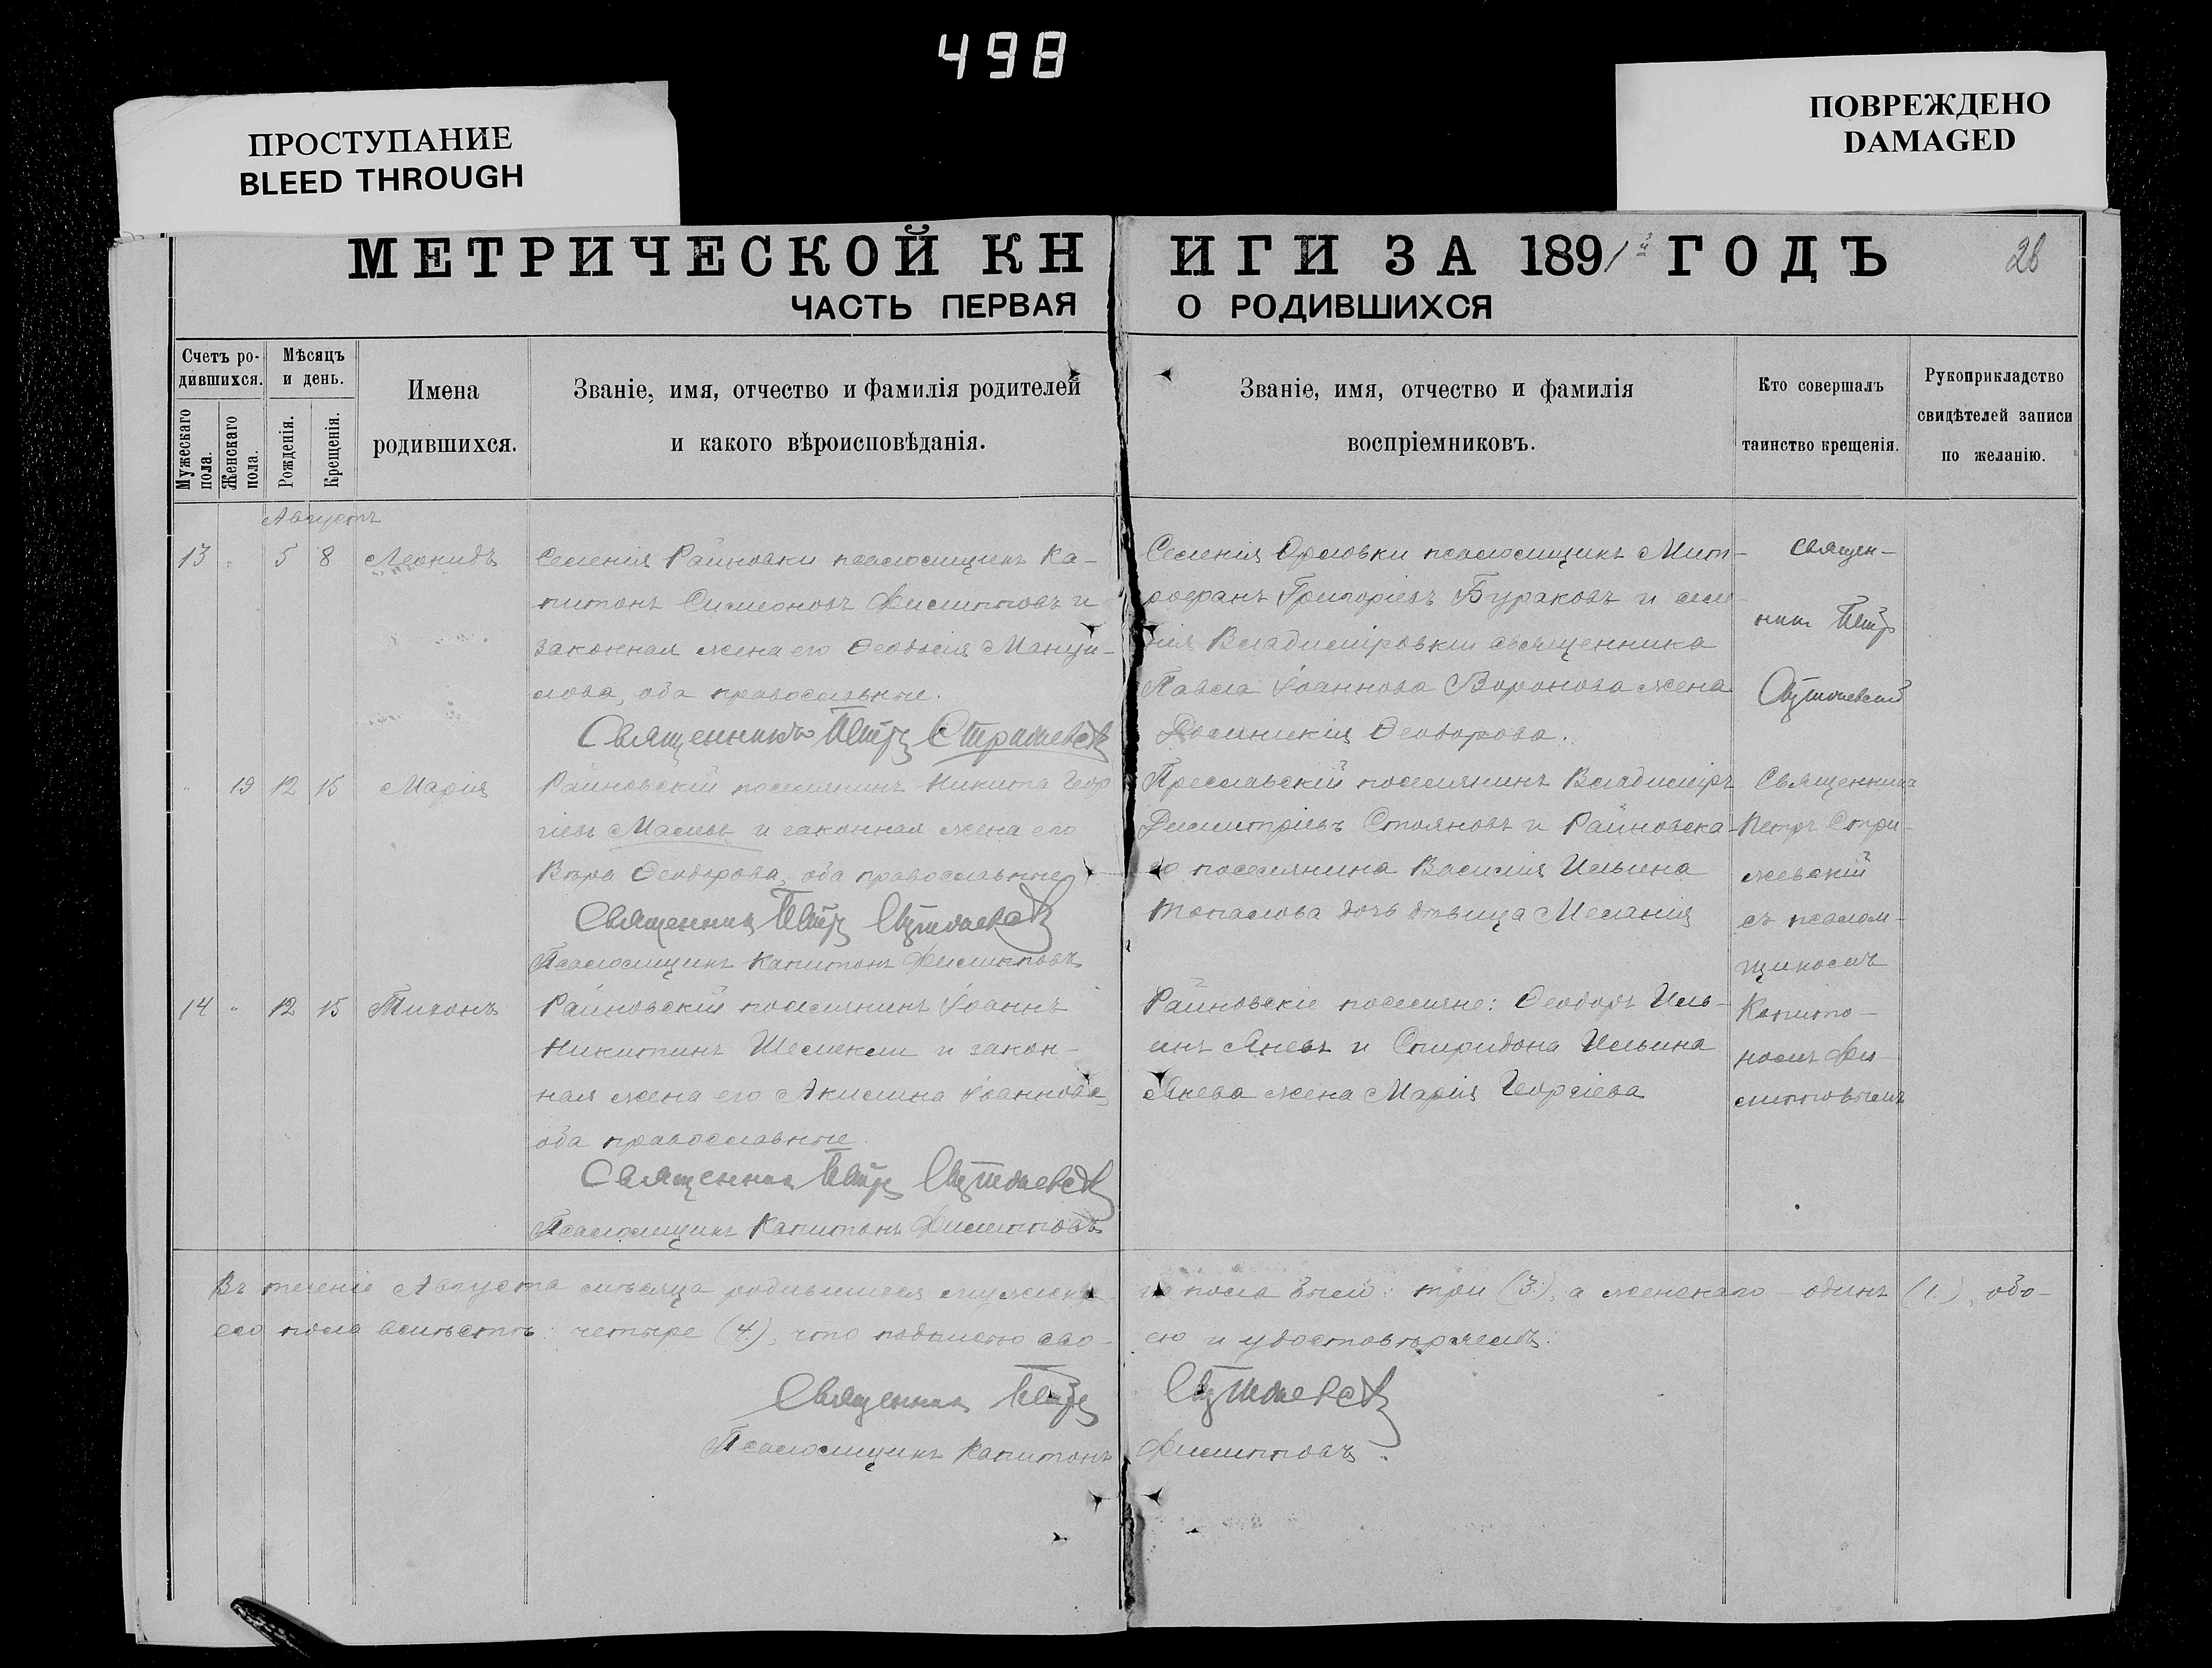 498
ПРОСТУПАНИЕ
BLEED THROUGH
ПОВРЕЖДЕНО
DAMAGED
МЕТРИЧЕСКОЙ КНИГИ ЗА 1891й ГОДЪ
28
ЧАСТЬ ПЕРВАЯ О РОДИВШИХСЯ
Счетъ ро-
дившихся.
Мужескаго пола.
Женскаго пола.
Мѣсяцъ
и день.
Рожденія.
Крещенія.
Имена
родившихся.
Званіе, имя, отчество и фамилія родителей
и какого вѣроисповѣданія.
Званіе, имя, отчество и фамилія
воспріемниковъ.
Кто совершалъ
таинство крещенія.
Рукоприкладство
свидѣтелей записи
по желанію.
Августъ
13 " 5 8 Леонидъ
Селенія Райновки псаломщикъ Ка-
питонъ Симеоновъ Филипповъ и
законная жена его Ѳеодосія Мануи-
лова, оба православные.
Священникъ Петръ Стрижевскій
Селенія Орловки псаломщикъ Мит-
рофанъ Григоріевъ Бураковъ и селе-
нія Владиміровки священника
Павла Іоаннова Воронова жена
Домникія Ѳеодорова.
Священ-
никъ Петръ
Стрижевскій
" 19 12 15 Марія
Райновскій поселянинъ Никита Геор
гіевъ Малевъ и законная жена его
Вѣра Ѳеодорова, оба православные
Священникъ Петръ Стрижевскій
Псаломщикъ Капитонъ Филипповъ
Преславскій поселянинъ Владиміръ
Димитріевъ Стояновъ и Райновска-
го поселянина Василія Ильина
Топалова дочь дѣвица Меланія
Священника
Петръ Стри-
жевскій
съ псалом-
щикомъ
Капито-
номъ Фи-
липповымъ
14 " 12 15 Тихонъ
Райновскій поселянинъ Іоаннъ
Никитинъ Шелемели и закон-
ная жена его Акилина Іоаннова,
оба православные.
Священникъ Петръ Стрижевскій
Псаломщикъ Капитонъ Филипповъ
Райновскіе поселяне: Ѳеодоръ Иль-
инъ Яневъ и Спиридона Ильина
Янева жена Марія Георгіева
Въ теченіе Августа мѣсяца родившихся мужска-го пола было: три (3.), а женскаго одинъ (1.), обо-
его пола вмѣстѣ: четыре (4.), что подписью сво-ею и удостовѣряемъ:
Священникъ Петръ Стрижевскій
Псаломщикъ Капитонъ Филипповъ.